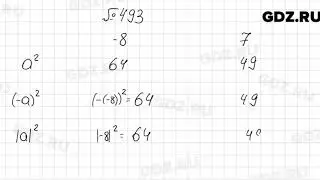 GDZ.RU
№493
-8 7
a² 64 49
(-a)² (-(-8))² = 64 49
|a|² |-8|² = 64